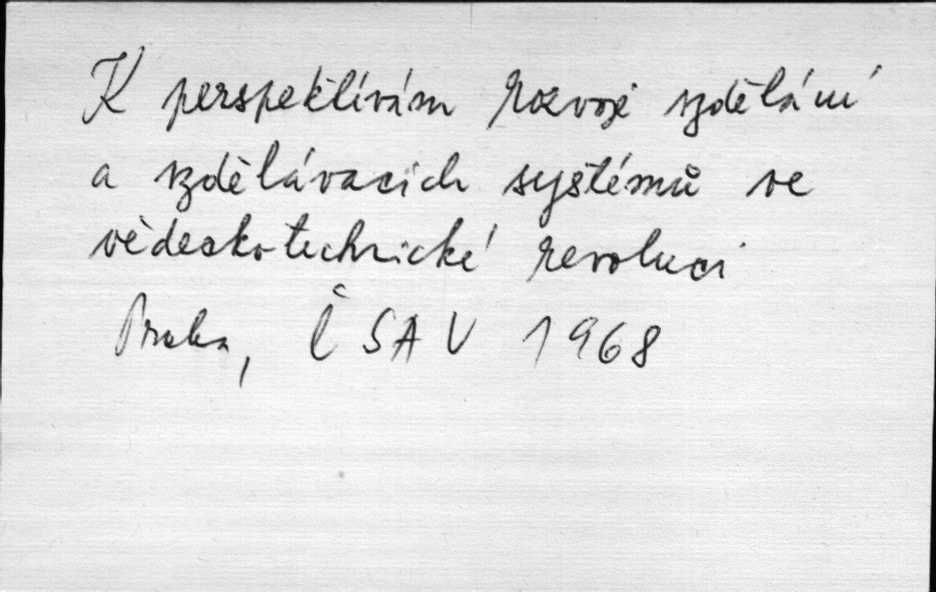 K perspektívám rozvoje vzdělání
a vzdělávacích systémů ve
vědeckotechnické revoluci
Praha, ČSAV 1968